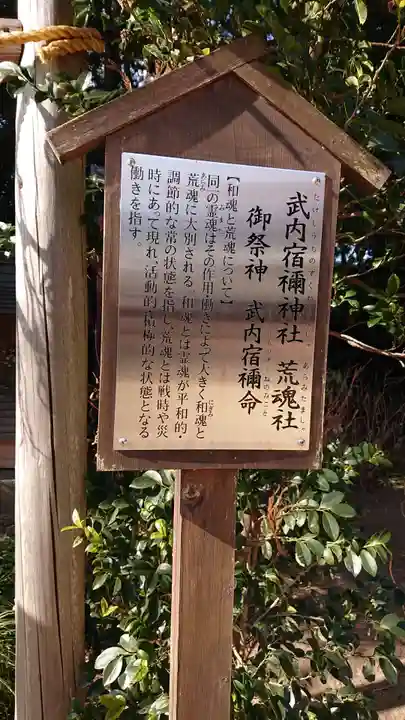 武内宿禰神社 荒魂社
御祭神 武内宿禰命
【和魂と荒魂について】
同一の霊魂はその作用、働きによって大きく和魂と
荒魂に大別される。和魂とは霊魂が平和的・
調節的な常の状態を指し、荒魂とは戦時や災
時にあって現れ、活動的・積極的な状態となる
働きを指す。